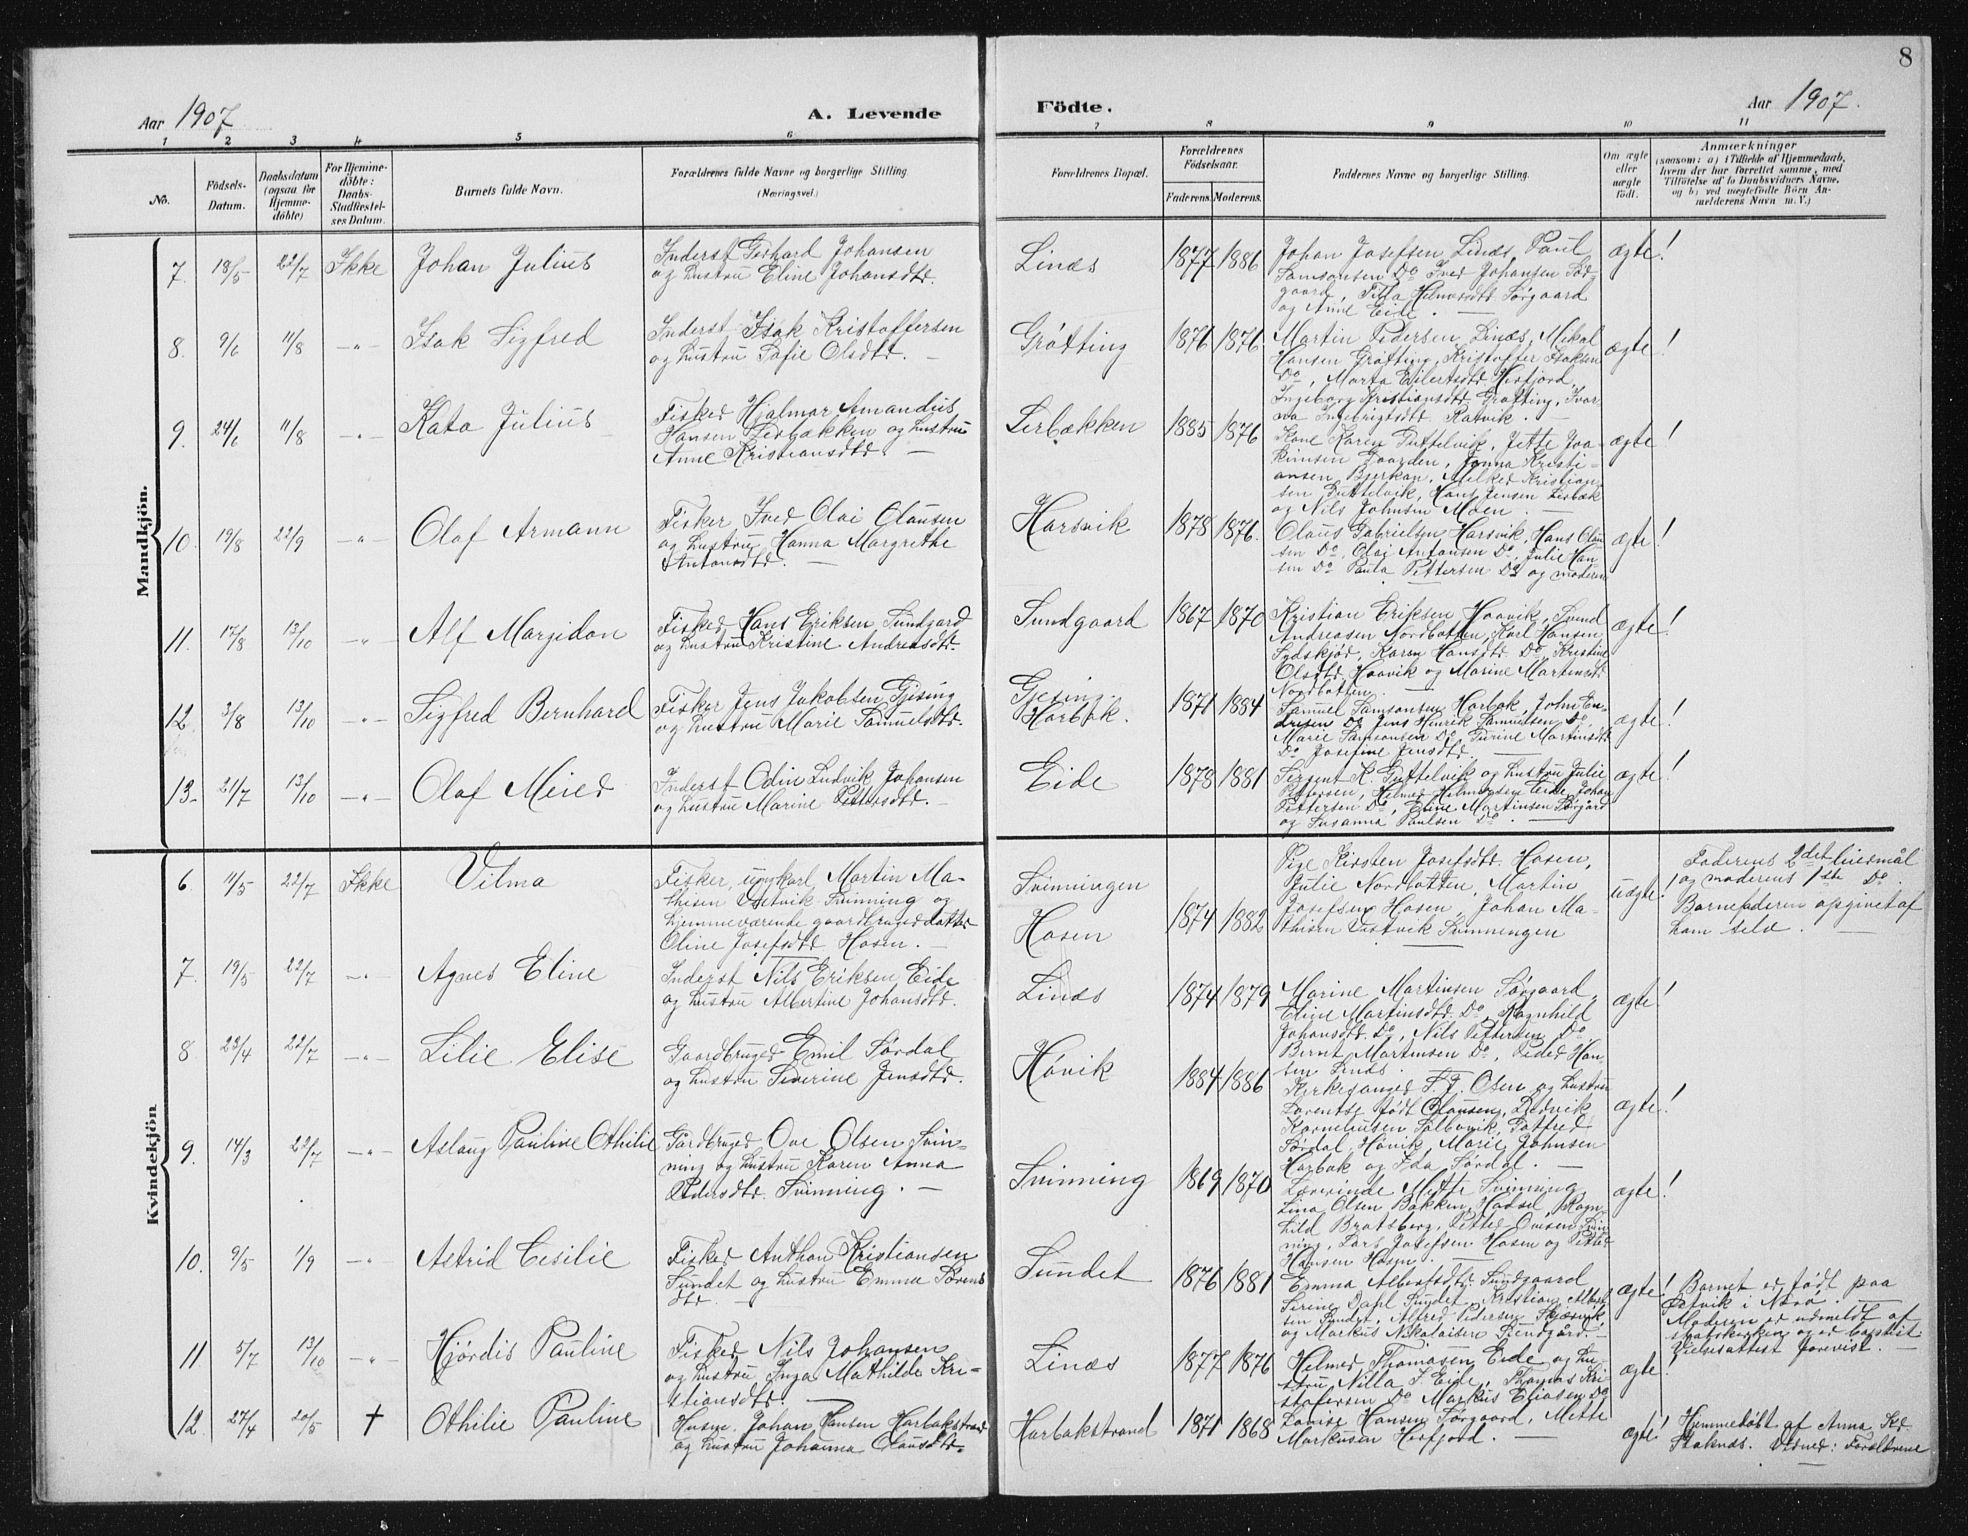 8
Aar 1907
A. Levende
Födte.
Aar 1907.
1 2 3 4 5 6 7 8 9 10 11
No.
Födsels-
Datum.
Daabsdatum
(ogsaa for
Hjemme-
döbte)
For Hjemme-
döbte:
Daabs-
Stadfæstel-
ses Datum.
Barnets fulde Navn.
Forældrenes fulde Navne og borgerlige Stilling.
(Næringsvei.)
Forældrenes Bopæl.
Forældrenes
Födselsaar.
Faderens. Moderens.
Faddernes Navne og borgerlige Stilling.
Om ægte
eller
uægte
födt.
Anmærkninger
(saasom: a) i Tilfælde af Hjemmedaab,
hvem der har forrettet samme, med
Tilföielse af to Daabsvidners Navne,
og b) ved uægtefödte Börn An-
melderens Navn m. V.)
Mandkjön.
7. 18/5 22/7 Ikke Johan Julius
Inderst Gerhard Johansen
og hustru Eline Johansdtr.
Linæs 1877 1886
Johan Josefsen Linæs, Paul
Samsonsen Do Ived Johansen Sør-
gaard, Filla Helmersdtr Sørgaard
og Anne Eide.
ægte!
8. 9/6 11/8 -"- Isak Sigfred
Inderst Isak Kristoffersen
og hustru Sofie Olsdtr.
Grøtting 1876 1876.
Martin Pedersen Linæs, Mikal
Hansen Grøtting, Kristoffer Isaksen
Do, Marta Eilertsdtr Herfjord,
Ingeborg Kristiansdtr Grøtting, Ivar-
na Ingebrigtsdtr Ratvik.
ægte!
9. 24/6 11/8 -"- Kato Julius
Fisker Hjalmar Amandus
Hansen Lerbækken og hustru
Anne Kristiansdtr.
Lerbækken 1885 1876
Kone Karen Duttelvik, Jette Joa-
kimsen Gaarden, Jonna Kristi-
ansen Bjerkan, Melked Kristian-
sen Duttelvik, Hans Jensen Lerbæk
og Nils Johnsen Moen.
ægte!
10. 19/8 22/9 -"- Olaf Armann
Fisker Ived Olai Olausen
og hustru Hanna Margrethe
Antonsdtr.
Harsvik 1878 1876.
Olaus Gabrielsen Harsvik, Hans Olau-
sen Do, Olai Antonsen Do, Julie Han-
sen Do Paula Pettersen Do og moderen
ægte!
11. 17/8 13/10 -"- Alf Margidon
Fisker Hans Eriksen Sundgard
og hustru Kristine Andreasdtr.
Sundgaard 1867 1870
Kristian Eriksen Haavik, Svend
Andreasen Nordbotten, Karl Hansen
Sydskjør, Karen Hansdtr Do, Kristine
Olsdtr Haavik og Marine Martinsdtr
Nordbotten.
ægte!
12. 3/8 13/10 -"- Sigfred Bernhard
Fisker Jens Jakobsen Gjesing
og hustru Marie Samuelsdtr.
Gjesing.
Harbak. 1871 1884
Samuel Samsonsen Harbak, John En-
dresen Do Jens Henrik Samuelsen Do,
Marie Samsonsen Do Turine Martinsdtr
Do Josefine Jensdtr
ægte!
13. 21/7 13/10 -"- Olaf Meier
Inderst Odin Ludvik Johansen
og hustru Marine Pettersdtr.
Eide 1878 1881
Sergent K. Duttelvik og hustru Julie
Pettersen, Helmer Helmersen Eide, Johan
Pettersen Do, Eline Martinsen Sørgård
og Susanna Paulsen Do.
ægte!
Kvindekjön
6 11/5 22/7 Ikke Vilma
Fisker, ungkarl Martin Ma-
thisen Vestvik Svinning og
hjemmeværende gaardbrugerdatter
Oline Josefsdtr Hosen.
Svinningen
Hosen 1874 1882
Pige Kirsten Josefsdtr. Hosen,
Julie Nordbotten, Martin
Josefsen Hosen, Johan Ma-
thisen Vestvik Svinningen
uægte!
Faderens 2det leiermål
og moderens 1ste Do.
Barnefaderen opgivet af
ham selv.
7. 19/5 22/7 -"- Agnes Eline
Inderst Nils Eriksen Eide
og hustru Albertine Johansdtr.
Linæs 1874 1879
Marine Martinsen Sørgaard,
Eline Martinsdtr Do, Ragnhild
Johansdtr. Do, Nils Pettersen Do
Bernt Martinsen Do, Peder Han-
sen Linæs.
ægte!
8. 23/4 22/7 -"- Lilie Elise
Gaardbruger Emil Sørdal
og hustru Severine Jensdtr.
Høvik 1884 1886
Kirkesanger F. J. Olsen og hustru
Lorentse født Olausen, Ludvik
Korneliusen Solbovik, Gotfred
Sørdal, Høvik, Marie Johnsen
Harbak og Ida Sørdal.
ægte!
9. 14/3 22/7 -"- Aslaug Pauline Othilie
Gårdbruger Ove Olsen Svin-
ning og hustru Karen Anna
Pedersdtr. Svinning.
Svinning 1869 1870
Lærerinde Mette Svinning,
Lina Olsen Bakken, Hadsel, Ragn-
hild Bratsberg, Petter Ovesen Svin-
ning, Lars Josefsen Hosen og Petter
Hansen Hosen.
ægte!
10. 9/5 1/9 -"- Astrid Cesilie
Fisker Anthon Kristiansen
Sundet og hustru Emma Sørens-
dtr.
Sundet 1876 1881
Emma Albertsdtr Sundgaard
Serine Dahl Sundet, Kristian Albert-
sen Sundet, Alfred Pedersen Skjærvik,
og Markus Nikolaisen Sundgård.
ægte!
Barnet er født paa
Østvik i Nærø.
Moderen er udmeldt af
statskirken og er baptist
Vielsesattest forevist.
11. 5/7 13/10 -"- Hjørdis Pauline
Fisker Nils Johansen
og hustru Inga Mathilde Kri-
stiansdtr.
Linæs 1877 1876
Helmer Thomasen Eide og hu-
stru Nilla J. Eide, Thomas Kri-
stofersen Do Markus Eliasen Do
ægte!
12. 27/4 20/5 † Othilie Pauline
Husm. Johan Hansen Harbakstrand
og hustru Johanna Olausdtr.
Harbakstrand 1871 1868
Lovise Hansen Sørgaard, Mette
Markusen Herfjord.
ægte!
Hjemmedøbt af Anna Kr.
Stoknæs. Vidner: Forældrene